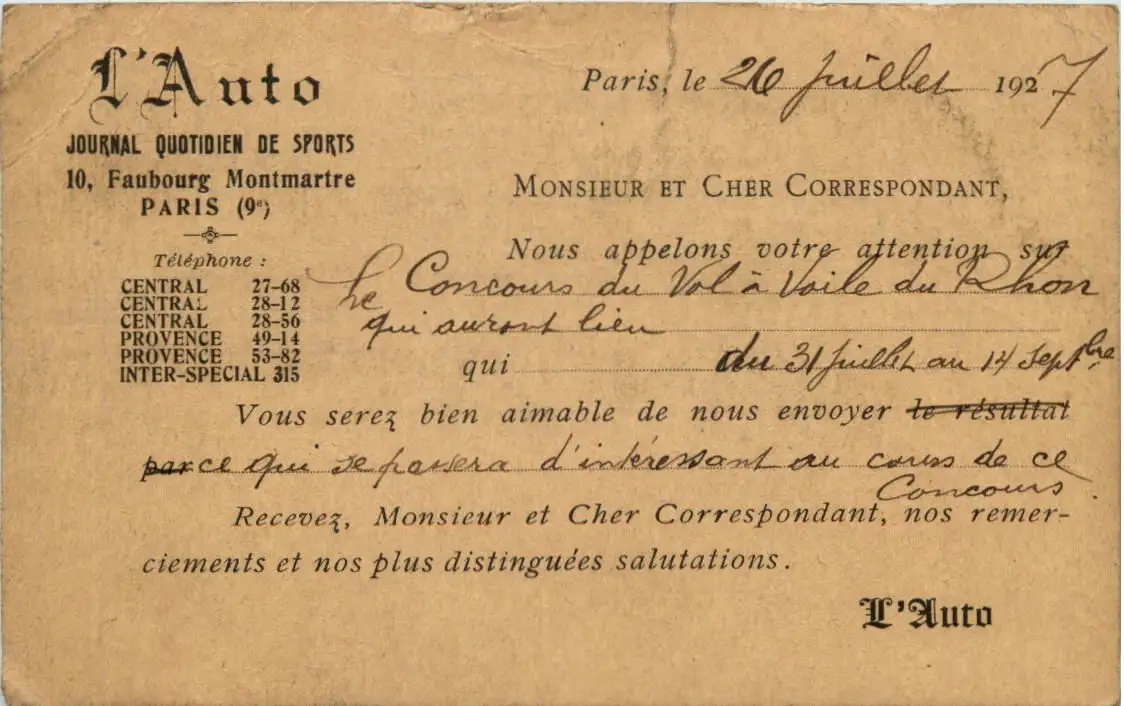 L'Auto
JOURNAL QUOTIDIEN DE SPORTS
10, Faubourg Montmartre
PARIS (9e)
Téléphone :
CENTRAL 27-68
CENTRAL 28-12
CENTRAL 28-56
PROVENCE 49-14
PROVENCE 53-82
INTER-SPECIAL 315
Paris, le 26 juillet 1927
MONSIEUR ET CHER CORRESPONDANT,
Nous appelons votre attention sur
le Concours du Vol à Voile du Rhon
qui auront lieu
qui du 31 juillet au 14 Septbre
Vous serez bien aimable de nous envoyer le résultat
par ce qui se passera d'intéressant au cours de ce
Concours.
Recevez, Monsieur et Cher Correspondant, nos remer-
ciements et nos plus distinguées salutations.
L'Auto